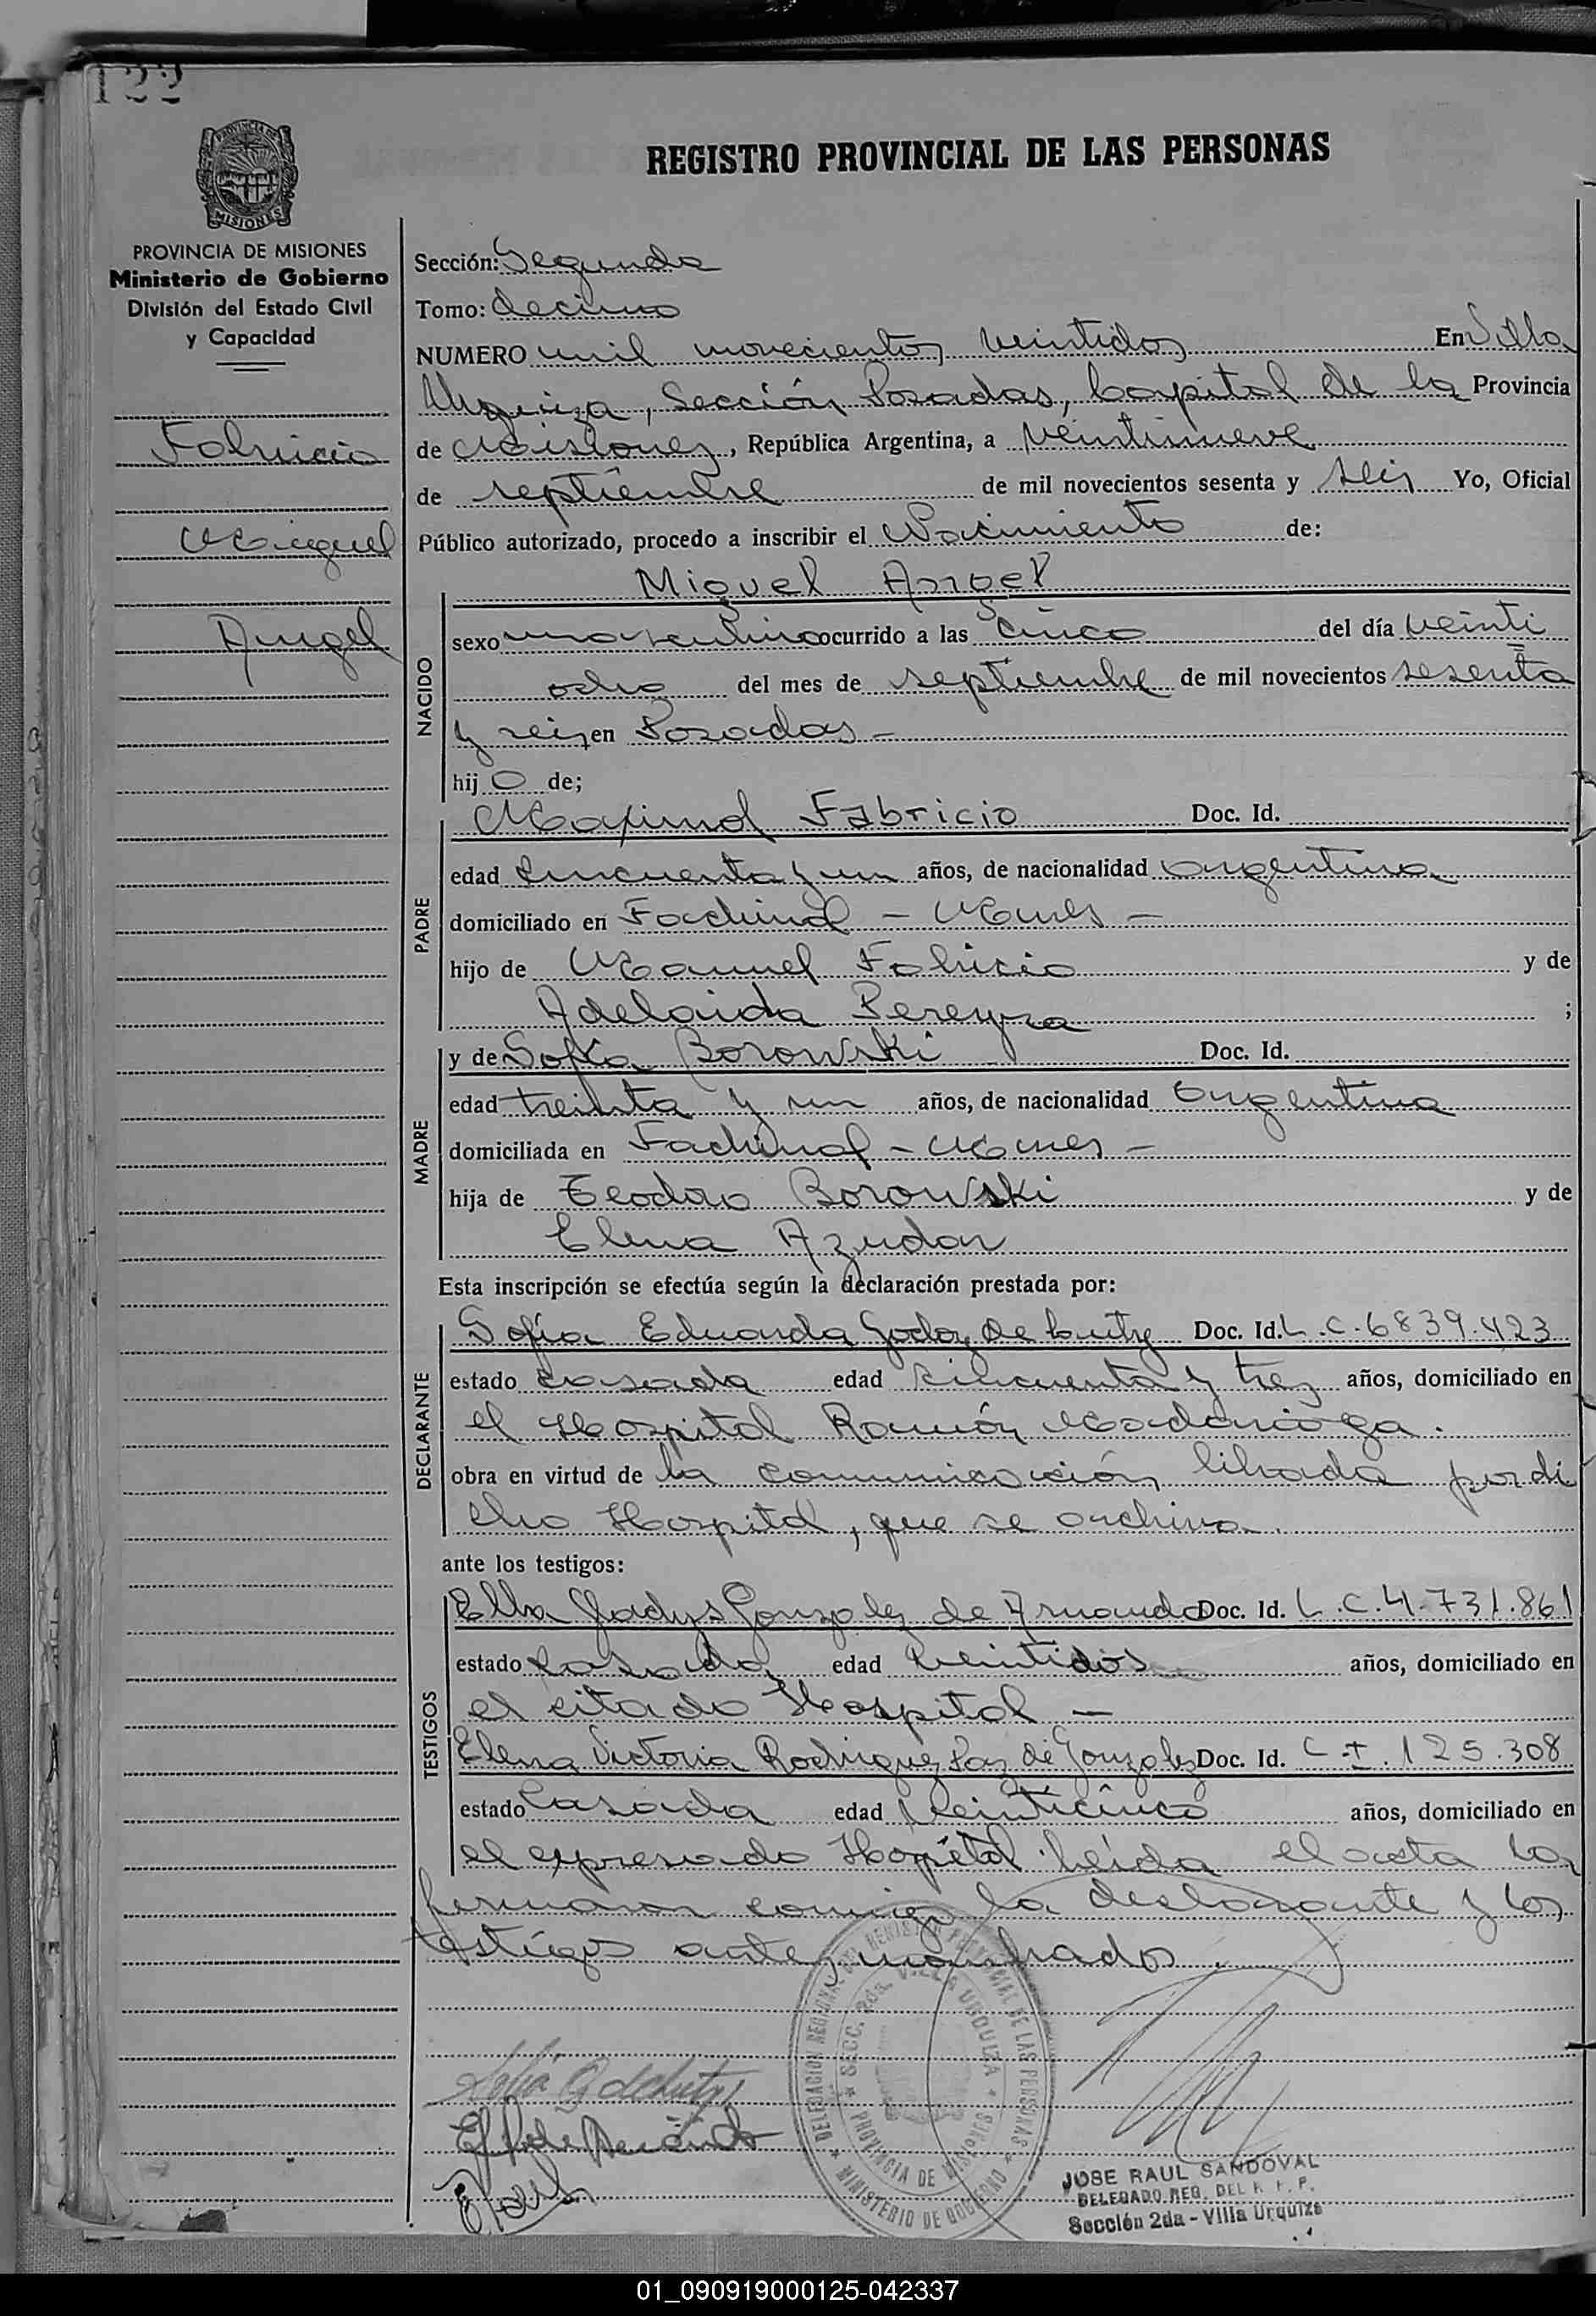 122
PROVINCIA DE
MISIONES
REGISTRO PROVINCIAL DE LAS PERSONAS
PROVINCIA DE MISIONES
Ministerio de Gobierno
División del Estado Civil
y Capacidad
Fabricio
Miguel
Angel
Sección: Segunda
Tomo: decimo
NUMERO mil novecientos veintidos En Villa
Urquiza, Sección Posadas, Capital de la Provincia
de Misiones, República Argentina, a veintinueve
de septiembre de mil novecientos sesenta y seis Yo, Oficial
Público autorizado, procedo a inscribir el Nacimiento de:
Miguel Angel
NACIDO
sexo masculino ocurrido a las cinco del día veinti
ocho del mes de septiembre de mil novecientos sesenta
y seis en Posadas -
hij o de;
PADRE
Maximol Fabricio Doc. Id.
edad cincuenta y un años, de nacionalidad argentina
domiciliado en Fachinal - Mnes -
hijo de Manuel Fabricio y de
Adelaida Pereyra ;
MADRE
y de Sofía Borowski Doc. Id.
edad treinta y un años, de nacionalidad argentina
domiciliada en Fachinal - Mnes -
hija de Teodoro Borowski y de
Elena Azudor
Esta inscripción se efectúa según la declaración prestada por:
DECLARANTE
Sofía Eduarda Godoy de Doc. Id. L.C. 6839.423
estado casada edad cincuenta y tres años, domiciliado en
el Hospital Ramón Madariaga.
obra en virtud de la comunicación librada por di
cho Hospital, que se archiva.
ante los testigos:
TESTIGOS
Elba Gladys Gonzalez de Doc. Id. L.C. 4.731.861
estado casada edad veintidós años, domiciliado en
el citado Hospital -
Elena Victoria Rodriguez Paz de Gonzalez Doc. Id. C.I. 125.308
estado casada edad veinticinco años, domiciliado en
el expresado Hospital. Leída el acta la
firmaron conmigo la declarante y los
testigos antes nombrados.
DELEGACION REGIONAL DEL REGISTRO PROVINCIAL DE LAS PERSONAS
SECC. 2da. VILLA URQUIZA
PROVINCIA DE MISIONES
MINISTERIO DE GOBIERNO
JOSE RAUL SANDOVAL
DELEGADO REG. DEL R. P. P.
Sección 2da - Villa Urquiza
01_090919000125-042337